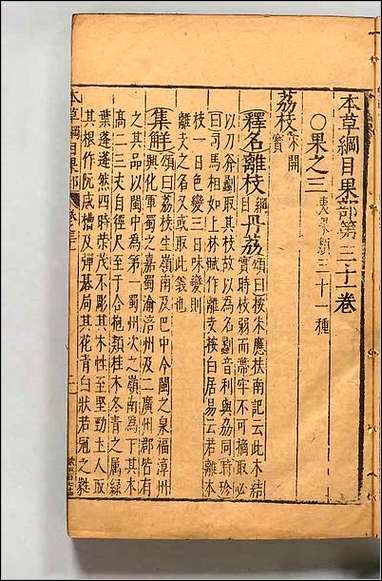 本草綱目果部第三十一卷
○果之三 夷果類三十一種
荔枝 宋開寶
釋名離枝 綱目 丹荔 頌曰按朱應扶南記云此木結
實時枝弱而蔕牢不可摘取必
以刀斧劙取其枝故以為名劙音利與荔同時珍
曰司馬相如上林賦作離支按白居易云若離本
枝一日色變三日味變則
離支之名又或取此義也
集解 頌曰荔枝生嶺南及巴中今閩之泉福漳州
興化軍蜀之嘉蜀渝涪州及二廣州郡皆有
之其品以閩中為第一蜀州次之嶺南為下其木
高二三丈自徑尺至于合抱類桂木冬青之屬綠
葉蓬蓬然四時榮茂不彫其木性至堅勁土人取
其根作阮咸槽及彈碁局其花青白狀若冠之蕤
本草綱目果部